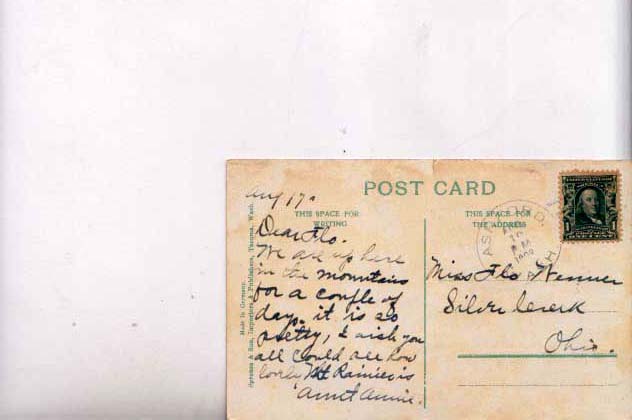 Aug 17.
POST CARD
THIS SPACE FOR
WRITING
THIS SPACE FOR
THE ADDRESS
Dear Flo.
We are up here
in the mountains
for a couple of
days. it is so
pretty, I wish you
all could see how
lovely Mt Rainier is
Aunt Annie.
Made in Germany.
& Son, Importers & Publishers, Tacoma, Wash.
ASHFORD
AUG
1908
1 1
Miss Flo Wenner
Silver Creek
Ohio.